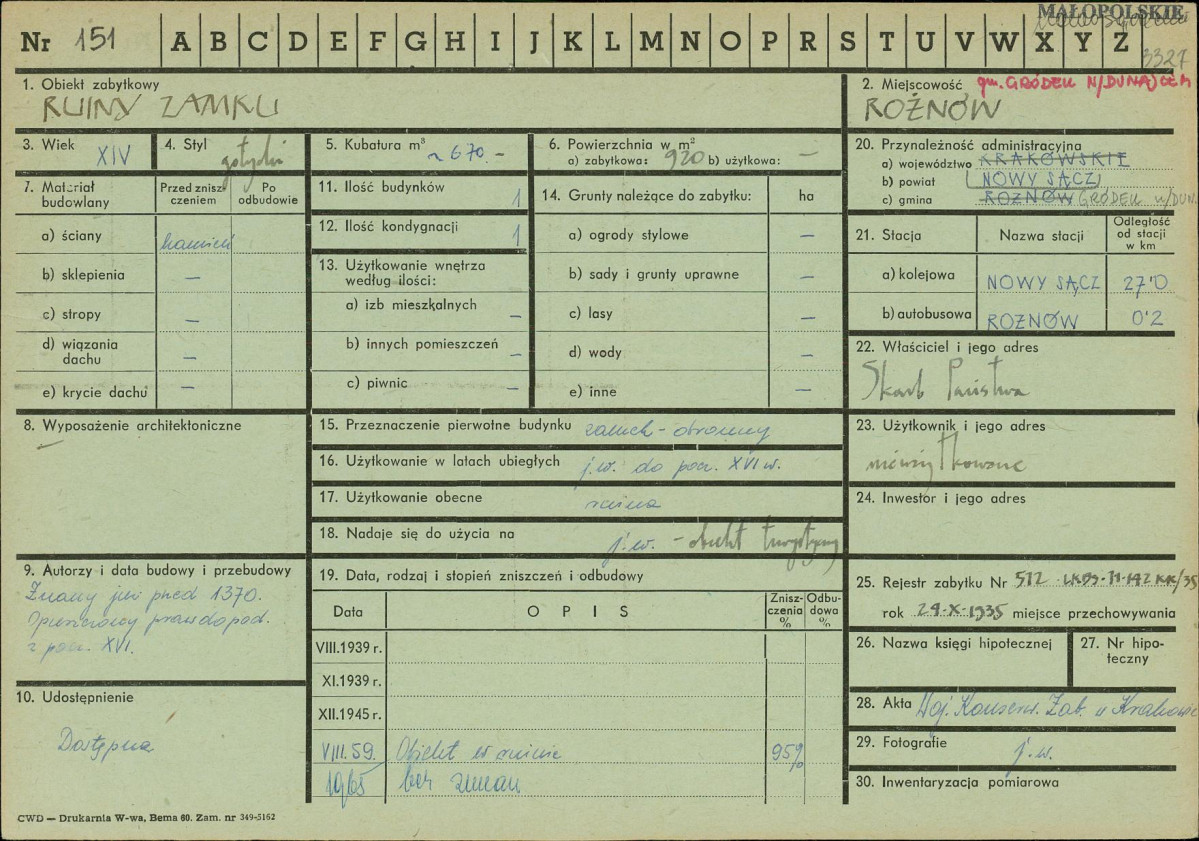 MAŁOPOLSKIE
Nr 151 A B C D E F G H I J K L M N O P R S T U V W X Y Z
3327
1. Obiekt zabytkowy
RUINY ZAMKU
2. Miejscowość gm. GRÓDEK N/DUNAJCEM
ROŻNÓW
3. Wiek XIV
4. Styl gotycki
5. Kubatura m³ ~670.-
6. Powierzchnia w m²
a) zabytkowa: 920 b) użytkowa: —
7. Materiał budowlany
Przed zniszczeniem
Po odbudowie
a) ściany kamień
b) sklepienia —
c) stropy —
d) wiązania dachu —
e) krycie dachu —
11. Ilość budynków 1
12. Ilość kondygnacji 1
13. Użytkowanie wnętrza według ilości:
a) izb mieszkalnych —
b) innych pomieszczeń —
c) piwnic —
14. Grunty należące do zabytku: ha
a) ogrody stylowe —
b) sady i grunty uprawne —
c) lasy —
d) wody —
e) inne —
20. Przynależność administracyjna
a) województwo KRAKOWSKIE
b) powiat NOWY SĄCZ
c) gmina ROZNÓW GRÓDEK n/DUN.
21. Stacja
Nazwa stacji
Odległość od stacji w km
a) kolejowa NOWY SĄCZ 27'0
b) autobusowa ROZNÓW 0'2
22. Właściciel i jego adres
Skarb Państwa
8. Wyposażenie architektoniczne
15. Przeznaczenie pierwotne budynku zamek - obronny
16. Użytkowanie w latach ubiegłych j.w. do pocz. XVI w.
17. Użytkowanie obecne ruina
18. Nadaje się do użycia na j.w. - obiekt turystyczny
23. Użytkownik i jego adres
nieużytkowane
24. Inwestor i jego adres
9. Autorzy i data budowy i przebudowy
Znany już przed 1370.
Opuszczony prawdopod.
z pocz. XVI.
10. Udostępnienie
Dostępna
19. Data, rodzaj i stopień zniszczeń i odbudowy
Data
OPIS
Zniszczenia %
Odbudowa %
VIII.1939 r.
XI.1939 r.
XII.1945 r.
VIII.59. Obiekt w ruinie 95%
1965 bez zmian
25. Rejestr zabytku Nr 512 LKDS-11-142 KK/35
rok 24.X.1935 miejsce przechowywania
26. Nazwa księgi hipotecznej
27. Nr hipoteczny
28. Akta Woj. Konserw. Zab. w Krakowie
29. Fotografie j.w.
30. Inwentaryzacja pomiarowa
CWD — Drukarnia W-wa, Bema 60. Zam. nr 349-5162